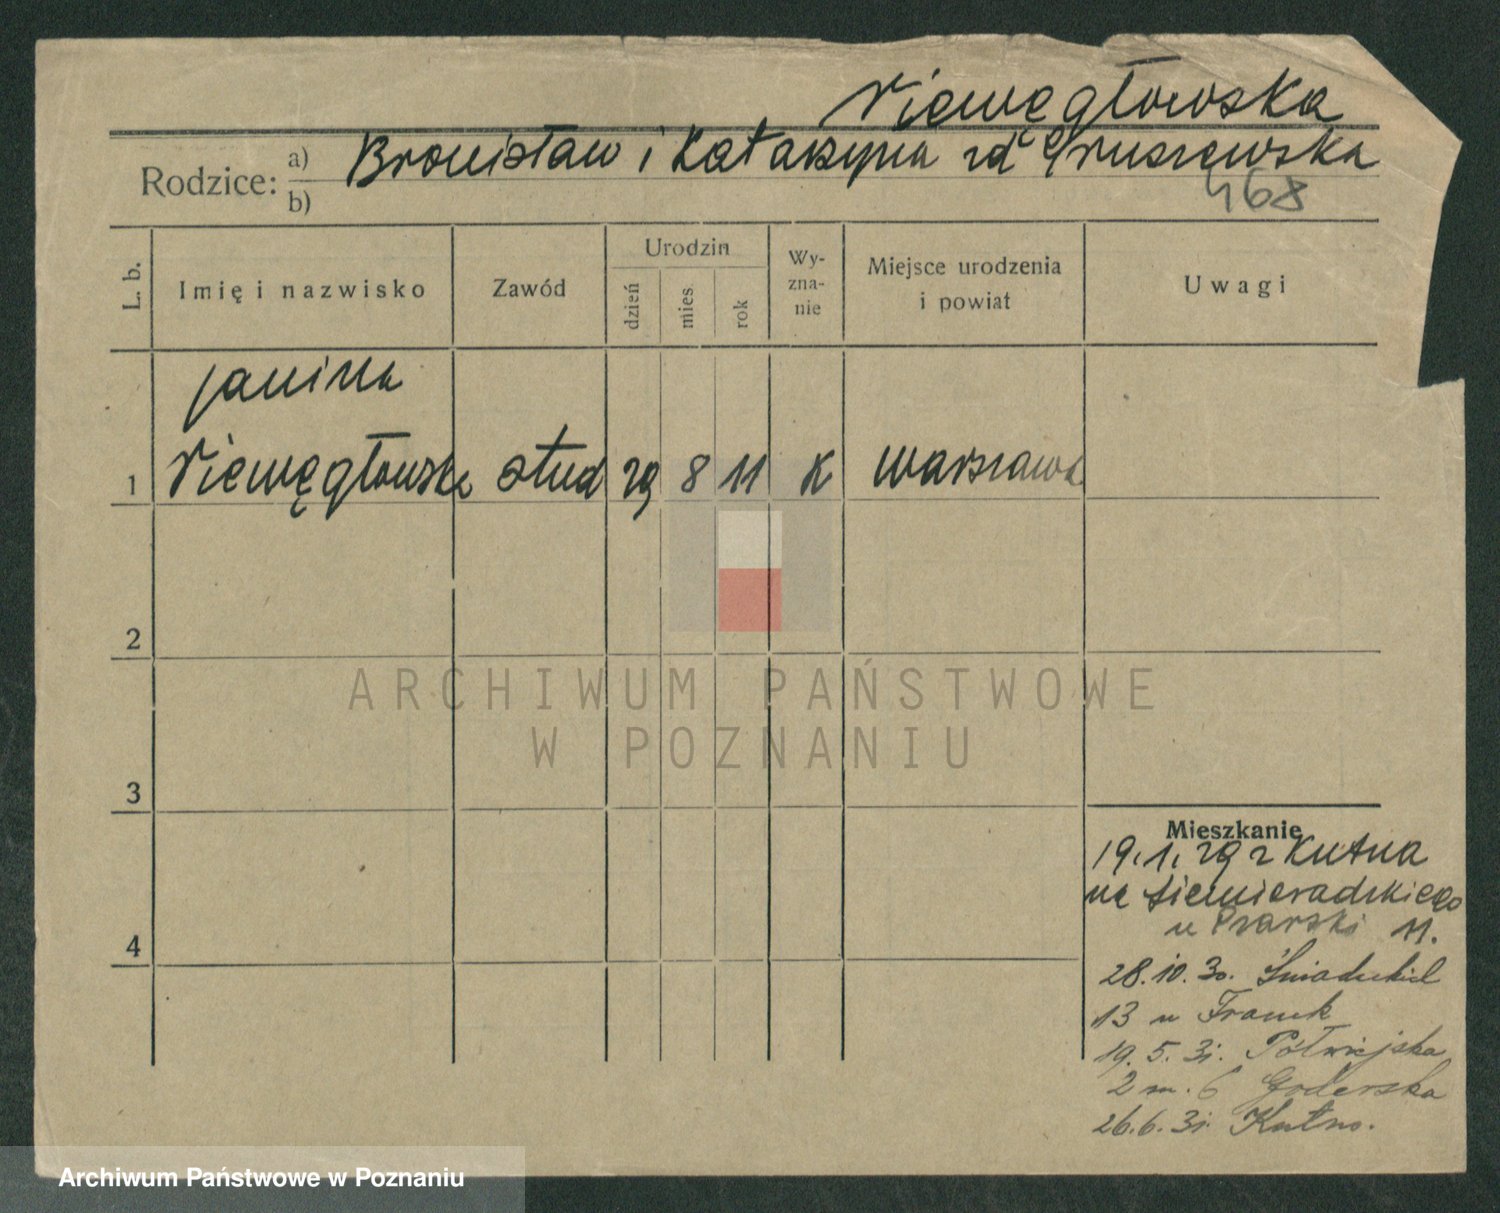 Niewęgłowska
Rodzice: a) Bronisław i Katarzyna zd Gruszewska
b)
468
L. b.
Imię i nazwisko
Zawód
Urodzin
dzień
mies
rok
Wy-
zna-
nie
Miejsce urodzenia
i powiat
Uwagi
Janina
1 Niewęgłowska stud 29 8 11 K Warszawa
2
3
4
ARCHIWUM PAŃSTWOWE
W POZNANIU
Mieszkanie
19.1.29 z Kutna
na Siemieradzkiego
u Psarski 11.
28.10.30. Śniadeckich
13 u Franek
19.5.31. Półwiejska
2 m. 6 Goderska
26.6.31. Kutno.
Archiwum Państwowe w Poznaniu